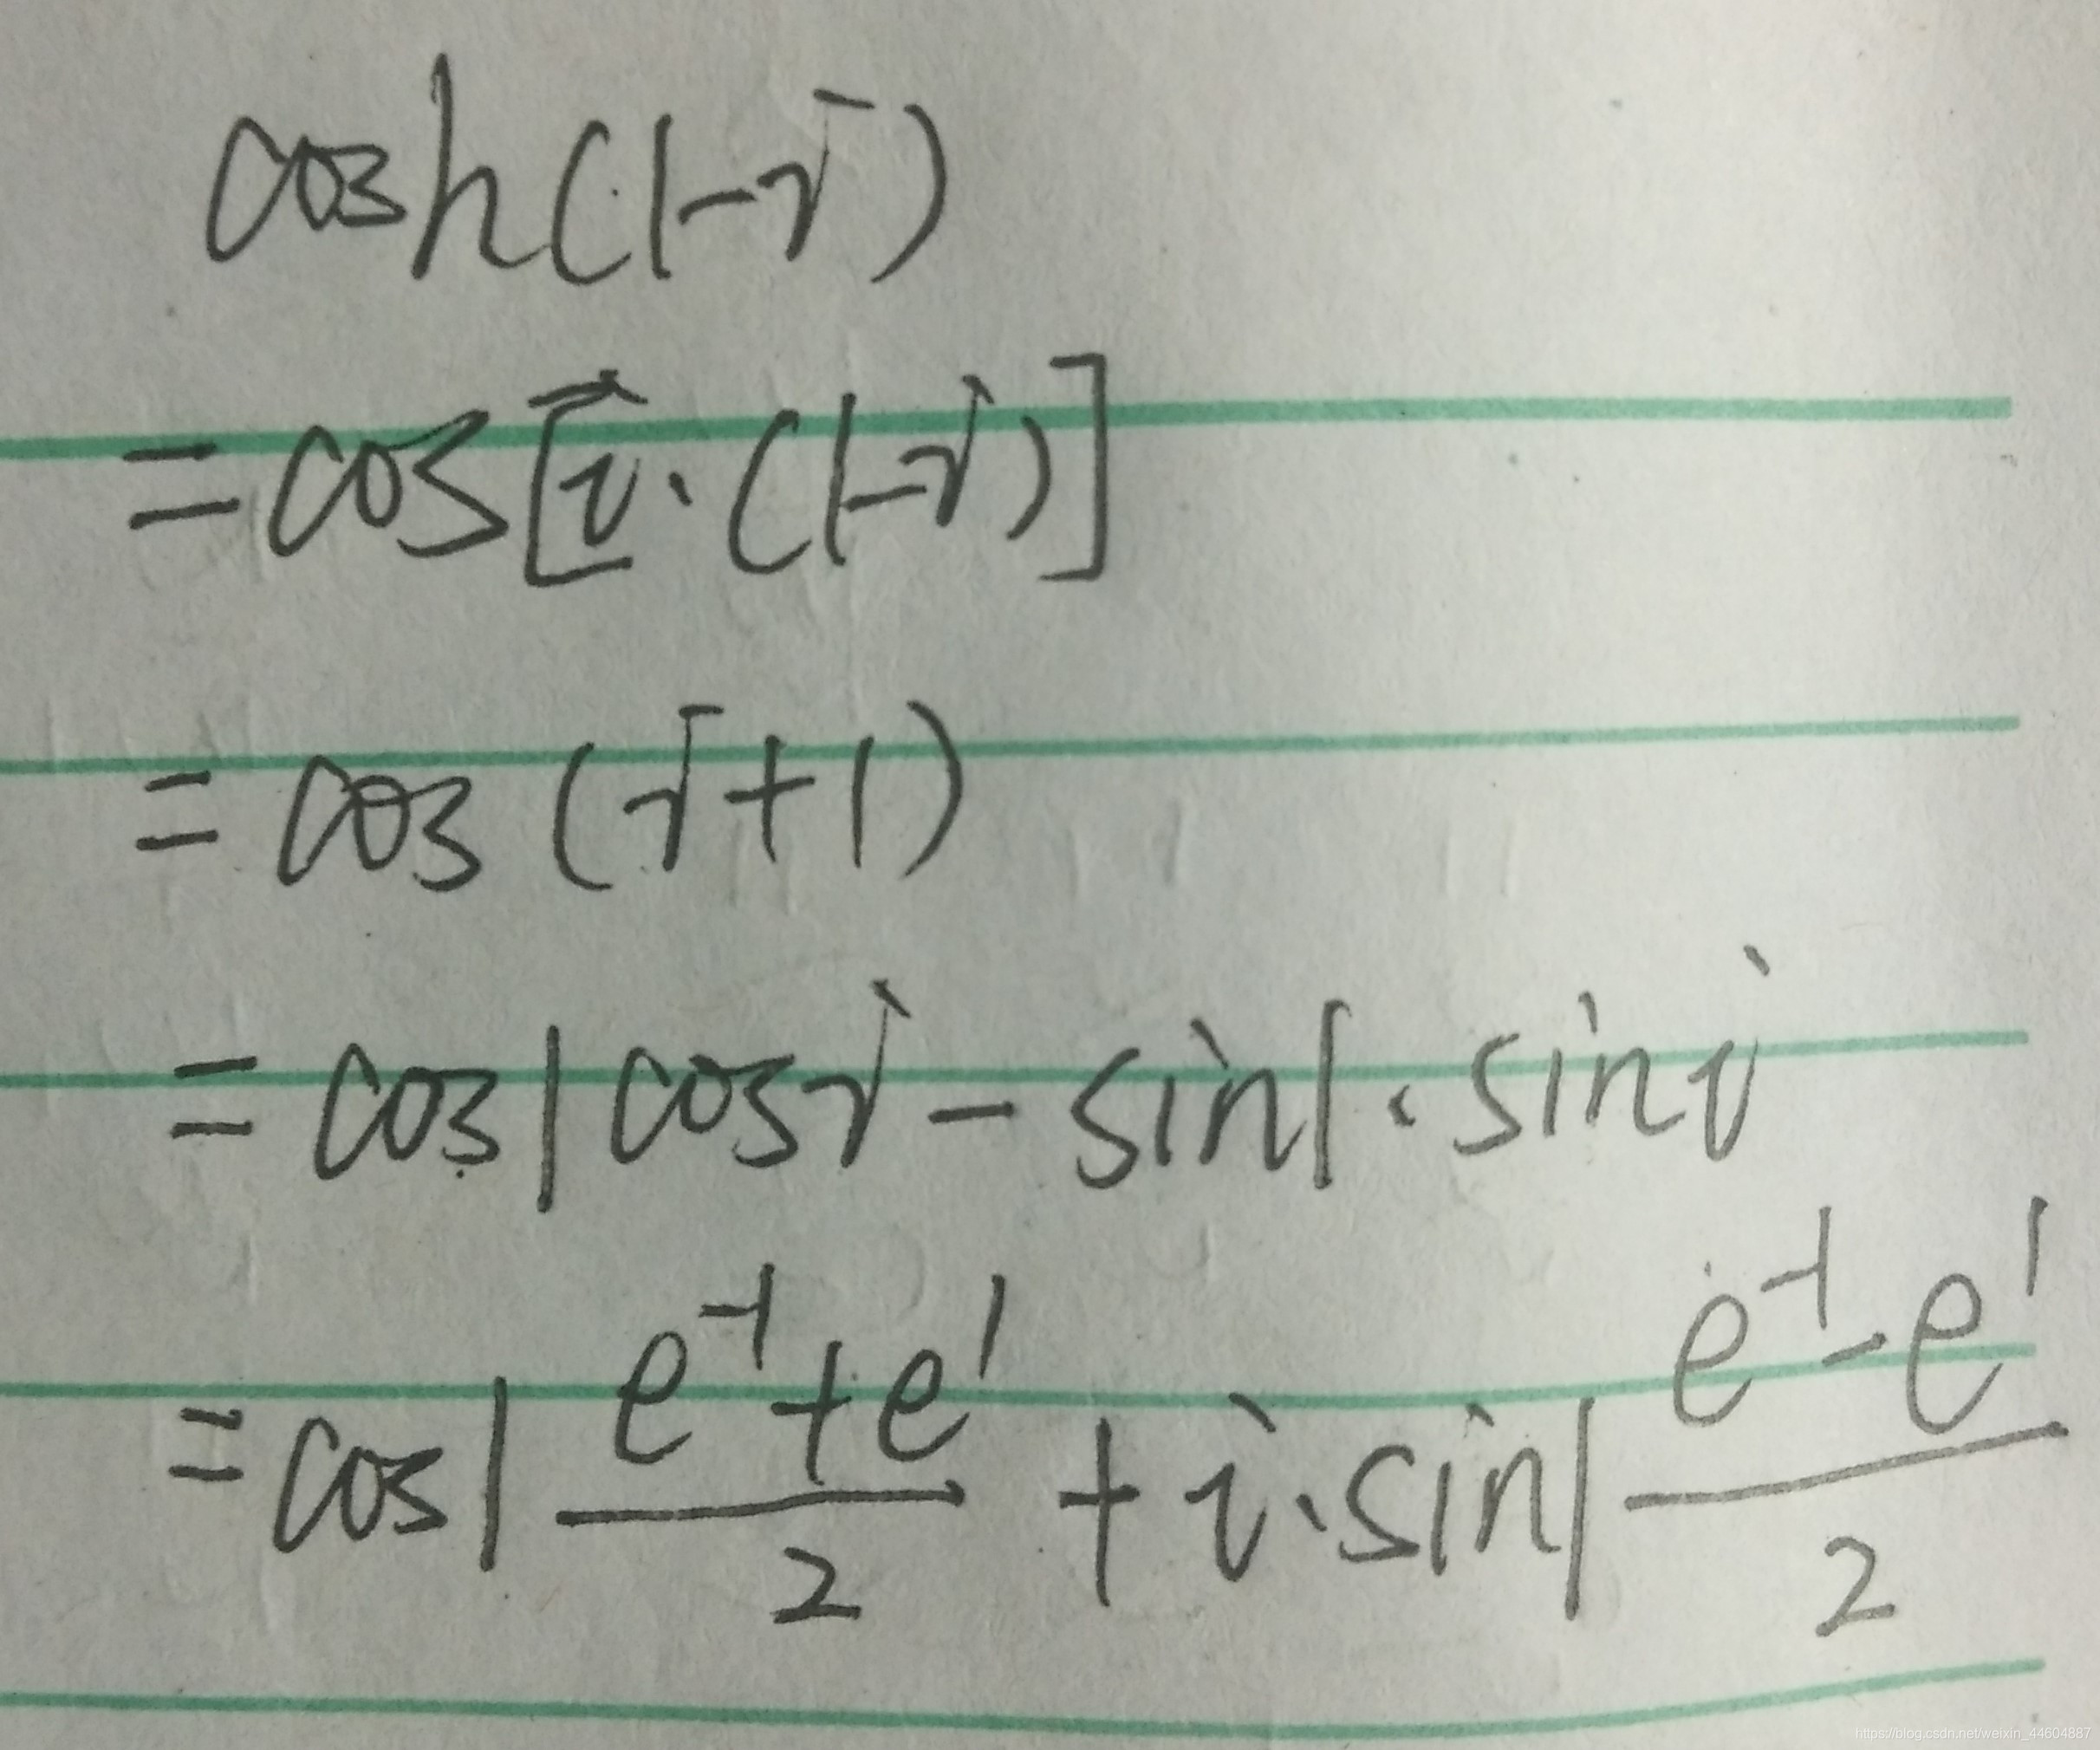 cosh(1-i)
=cos[i·(1-i)]
=cos(i+1)
=cos1cosi-sin1·sini
=cos1 \frac{e^{-1}+e^{1}}{2}+i·sin1 \frac{e^{-1}-e^{1}}{2}
https://blog.csdn.net/weixin_44604887